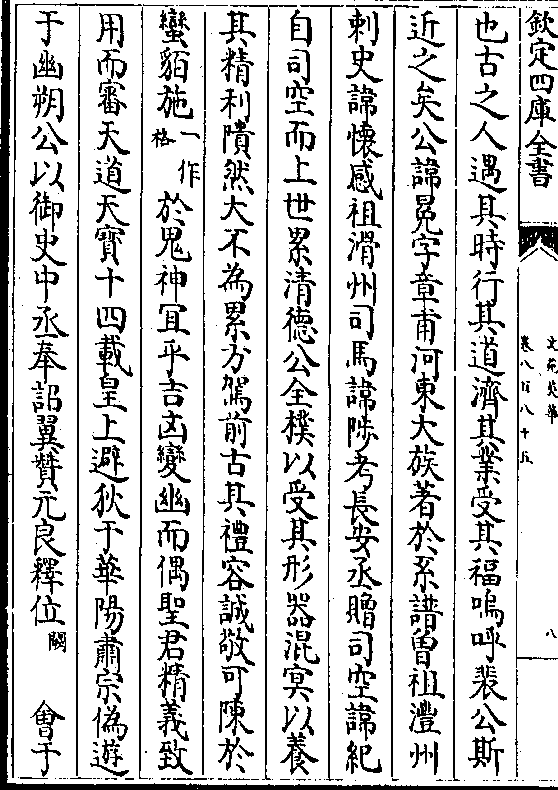 欽定四庫全書
文苑英華
卷八百八十五
八
也古之人遇其時行其道濟其業受其福嗚呼裴公斯
近之矣公諱冕字章甫河東大族著於系譜曾祖澧州
刺史諱懷感祖滑州司馬諱陟考長安丞贈司空諱紀
自司空而上世累清德公全樸以受其形器混冥以養
其精利隤然大不為累方駕前古其禮容誠敬可陳於
蠻貊施一作格於鬼神冝乎吉凶變幽而偶聖君精義致
用而審天道天寳十四載皇上避狄于華陽肅宗偽遊
于幽朔公以御史中丞奉詔翼賛元良釋位闕會于